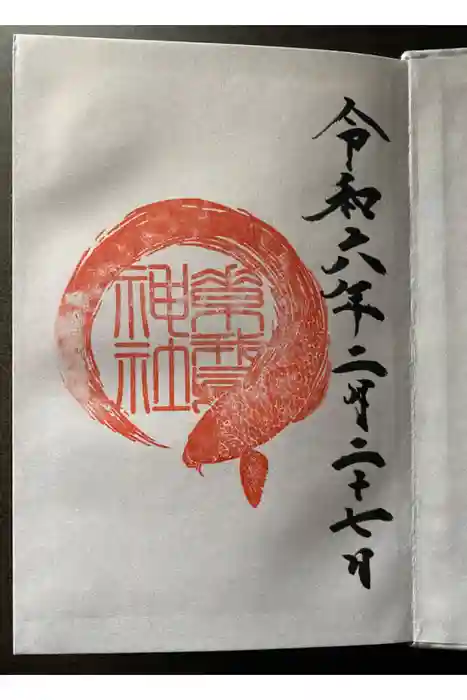 令和六年二月二十七日
素鵞
神社